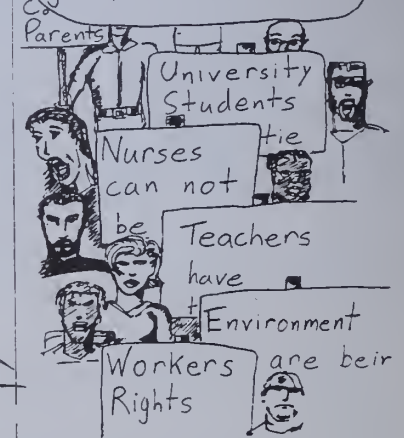 Parents
University
Students
tie
Nurses
can not
be
Teachers
have
Environment
are beir
Workers
Rights